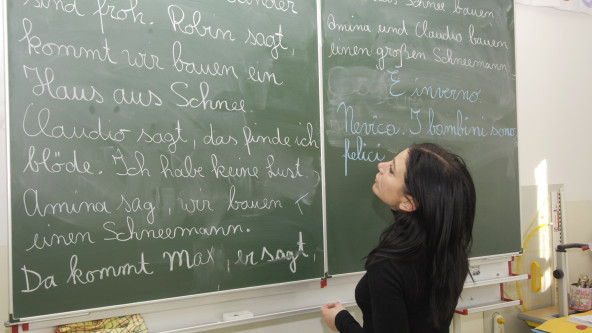 sind froh. Robin sagt,
kommt wir bauen ein
Haus aus Schnee.
Claudio sagt, das finde ich
blöde. Ich habe keine Lust.
Amina sag, wir bauen
einen Schneemann.
Da kommt Max, er sagt,
Schnee bauen
Amina und Claudio bauen
einen großen Schneemann
È inverno.
Nevica. I bambini sono
felici